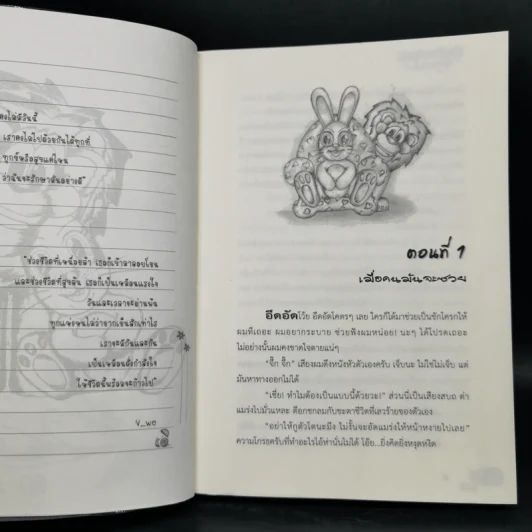 เราคงไปไปด้วยกันได้ทุกที่
ทุกข์หรือสุขแค่ไหน
ว่าฉันจะรักษามันอย่างดี"
"ช่วงชีวิตที่เหนื่อยล้า เธอก็เข้ามาปลอบโยน
และช่วงชีวิตที่สุขล้น เธอก็เป็นเหมือนแรงใจ
วันและเวลาจะผ่านพ้น
เราจะมีกันและกัน
เป็นเหมือนดั่งกำลังใจ
ให้ชีวิตนั้นพร้อมจะก้าวไป"
V_wo
ตอนที่ 1
เมื่อคนมันจะซวย
อึดอัดโว้ย อึดอัดโคตรๆ เลย ใครก็ได้มาช่วยเป็นชักโครกให้
ผมทีเถอะ ผมอยากระบาย ช่วยฟังผมหน่อย! นะๆ ได้โปรดเถอะ
ไม่อย่างนั้นผมคงขาดใจตายแน่ๆ
"จึ๊ก จึ๊ก" เสียงผมดึงหนังหัวตัวเองครับ เจ็บนะ ไม่ใช่ไม่เจ็บ แต่
มันหาทางออกไม่ได้
"เชี่ย! ทำไมต้องเป็นแบบนี้ด้วยวะ!" ส่วนนี่เป็นเสียงสบถ ด่า
แม่งไปมั่วแหละ ตีอกชกลมกับชะตาชีวิตที่เลวร้ายของตัวเอง
"อย่าให้กูตัวโตนะมึง ไม่งั้นจะอัดแม่งให้หน้าหงายไปเลย"
ความโกรธครับที่ทำอะไรไอ้ห่านั่นไม่ได้ โอ๊ย...ยิ่งคิดยิ่งหงุดหงิด